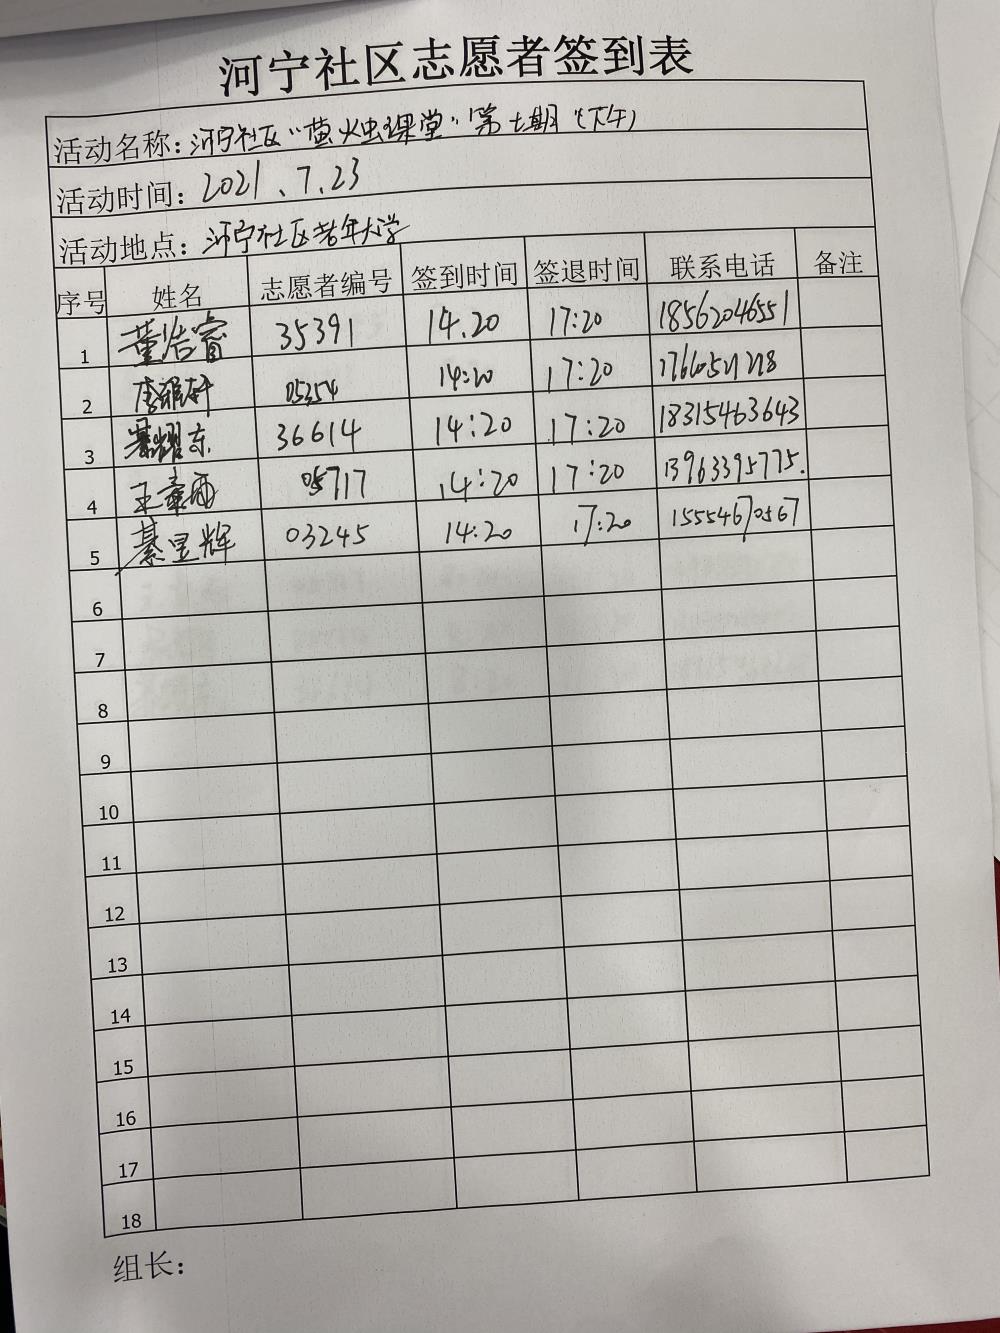 河宁社区志愿者签到表
活动名称：河宁社区“萤火虫课堂”第七期（下午）
活动时间：2021.7.23
活动地点：河宁社区老年大学
序号 姓名 志愿者编号 签到时间 签退时间 联系电话 备注
1 董浩睿 35391 14.20 17:20 18562046551
2 李雅轩 05354 14:20 17:20
3 耀东 36614 14:20 17:20 18315463643
4 王雨 05717 14:20 17:20 13963395775.
5 綦星辉 03245 14:20 17:20 15554670567
6
7
8
9
10
11
12
13
14
15
16
17
18
组长：